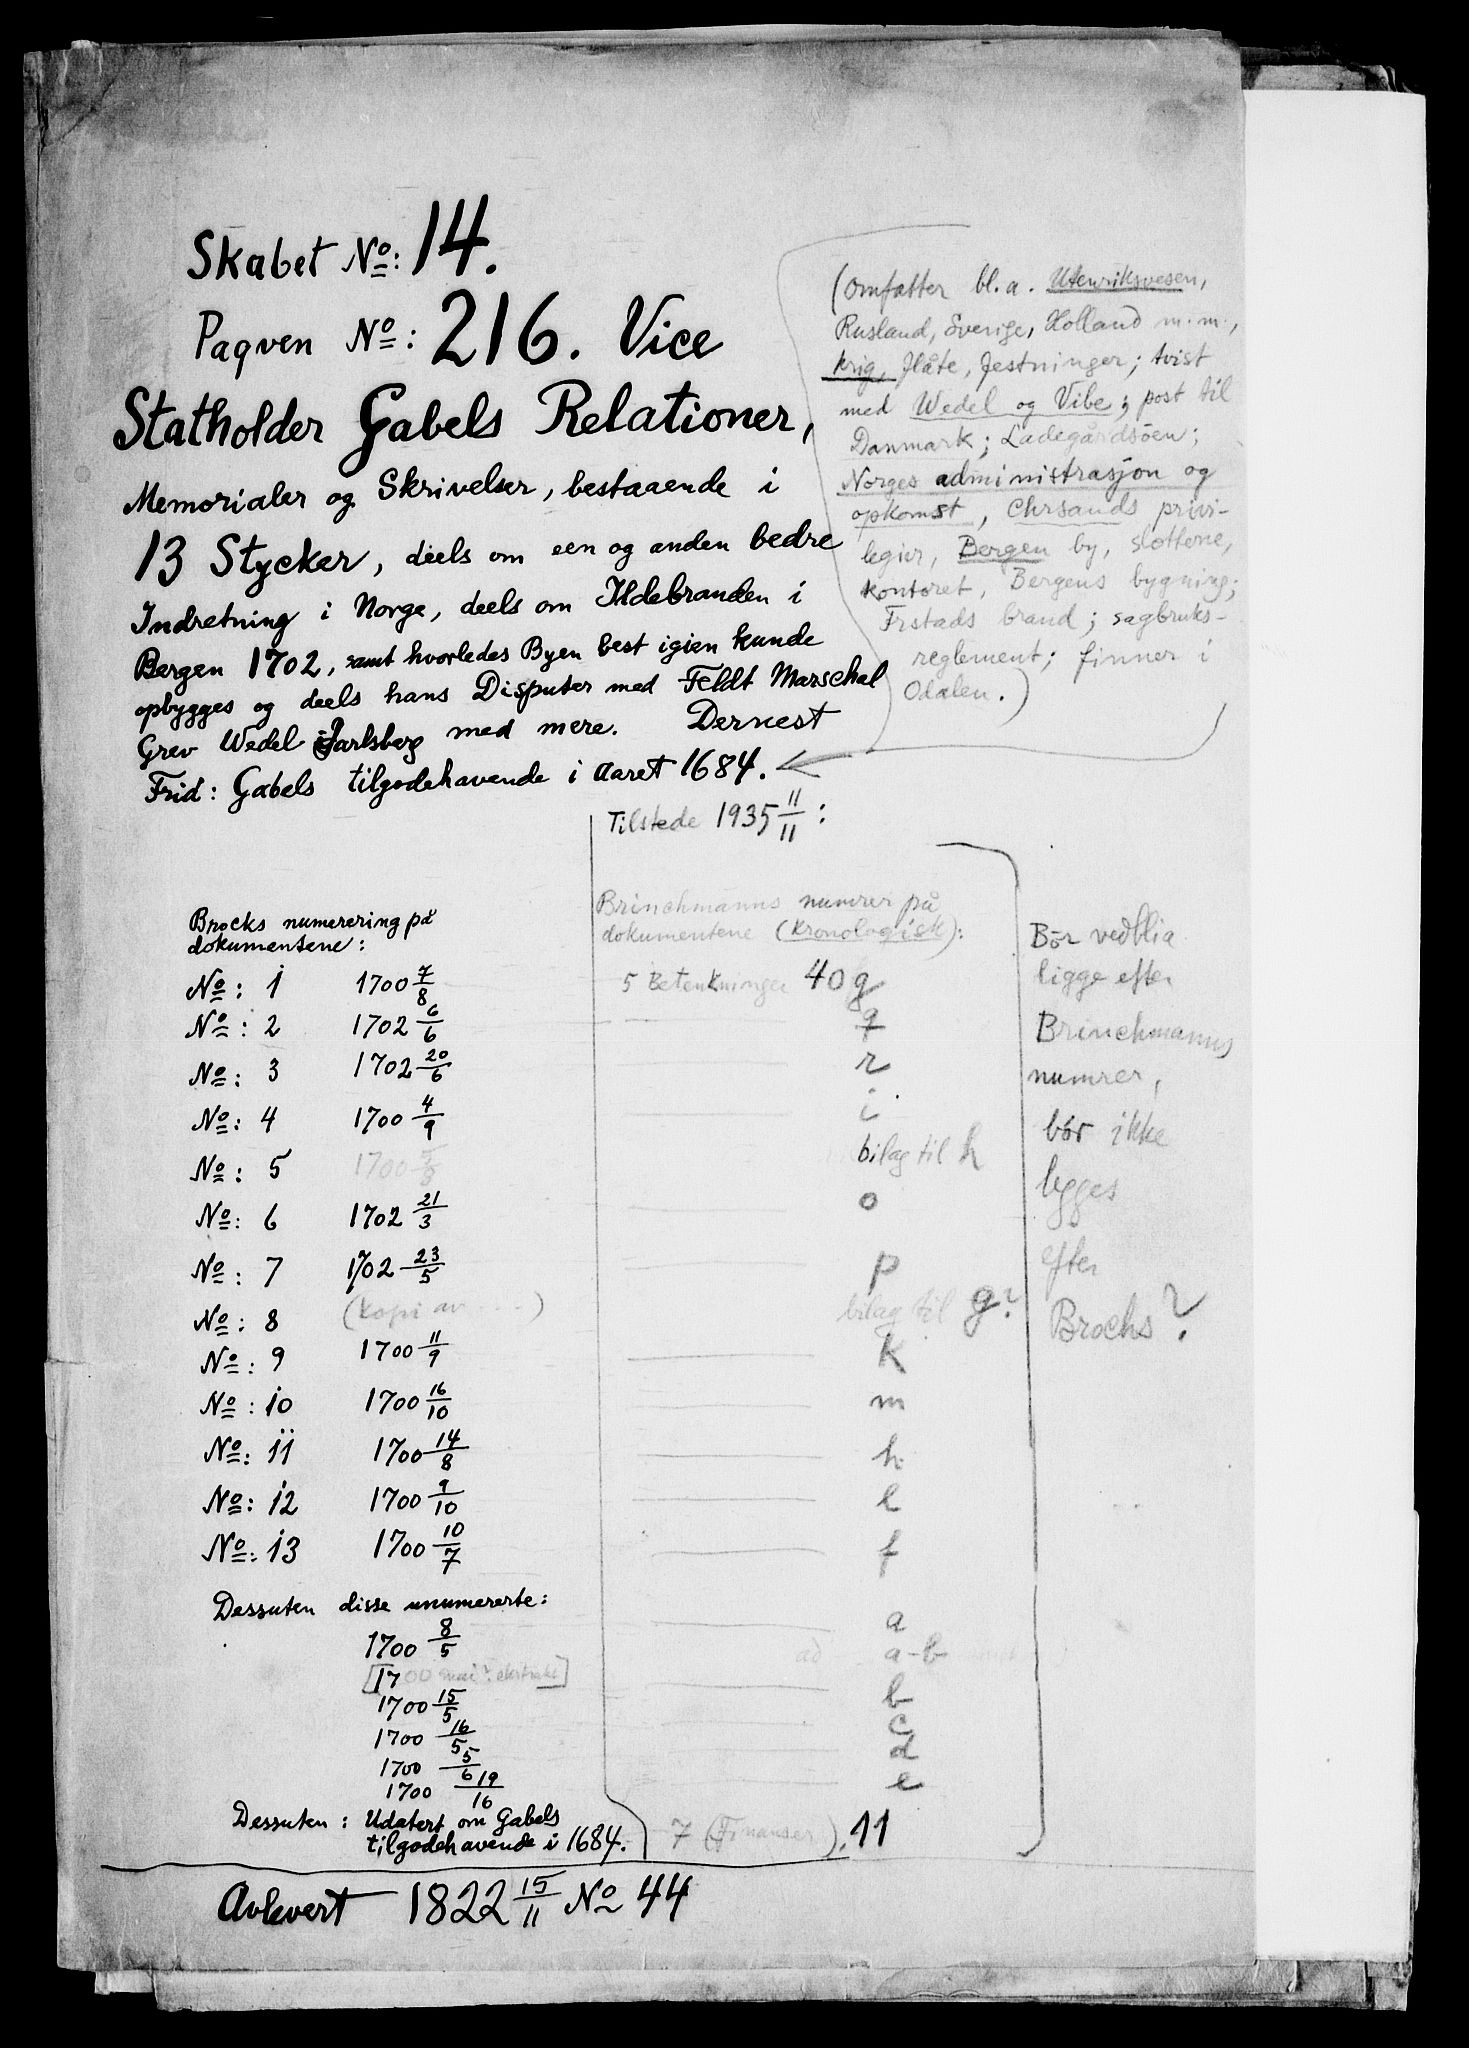 Skabet No: 14.
Paqven No: 216. Vice
Statholder Gabels Relationer,
Memorialer og Skrivelser, bestaaende i
13 Stycker, deels om een og anden bedre
Indretning i Norge, deels om Ildebranden i
Bergen 1702, samt hvorledes Byen best igien kunde
opbygges og deels hans Disputer med Feldt Marschal
Grev Wedel Jarlsberg med mere. Dernest
Frid: Gabels tilgodehavende i Aaret 1684.
(omfatter bl. a. Utenriksvesen,
Rusland, Sverige, Holland m. m.,
krig, flåte, festninger; tvist
med Wedel og Vibe; post til
Danmark; Ladegårdsöen;
Norges administrasjon og
opkomst, Chrsands privi-
legier, Bergen by, slottene,
kontoret, Bergens bygning;
Frstads brand; sagbruks-
reglement; finner i
Odalen.)
Tilstede 1935 11/11:
Brocks numerering på
dokumentene:
Brinchmanns numrer på
dokumentene (kronologisk):
No: 1 1700 7/8 5 Betenkninger 40 g
No: 2 1702 6/6 q
No: 3 1702 20/6 r
No: 4 1700 4/9 i
No: 5 1700 bilag til h
No: 6 1702 21/3 o
No: 7 1702 23/5 p
No: 8 (kopi av ....) bilag til g?
No: 9 1700 11/9 k
No: 10 1700 16/10 m
No: 11 1700 14/8 h
No: 12 1700 9/10 l
No: 13 1700 10/7 f
Dessuten disse unumererte:
1700 8/5 a
[1700 mai? ekstrakt] ad a-b
1700 15/5 b
1700 16/5 c
1700 5/6 d
1700 19/10 e
Dessuten: Udatert om Gabels
tilgodehavende i 1684. 7 (Finanser). 11
Bör vedblia
ligge efter
Brinchmanns
numrer,
bör ikke
legges
efter
Brochs?
Avlevert 1822 15/11 No 44